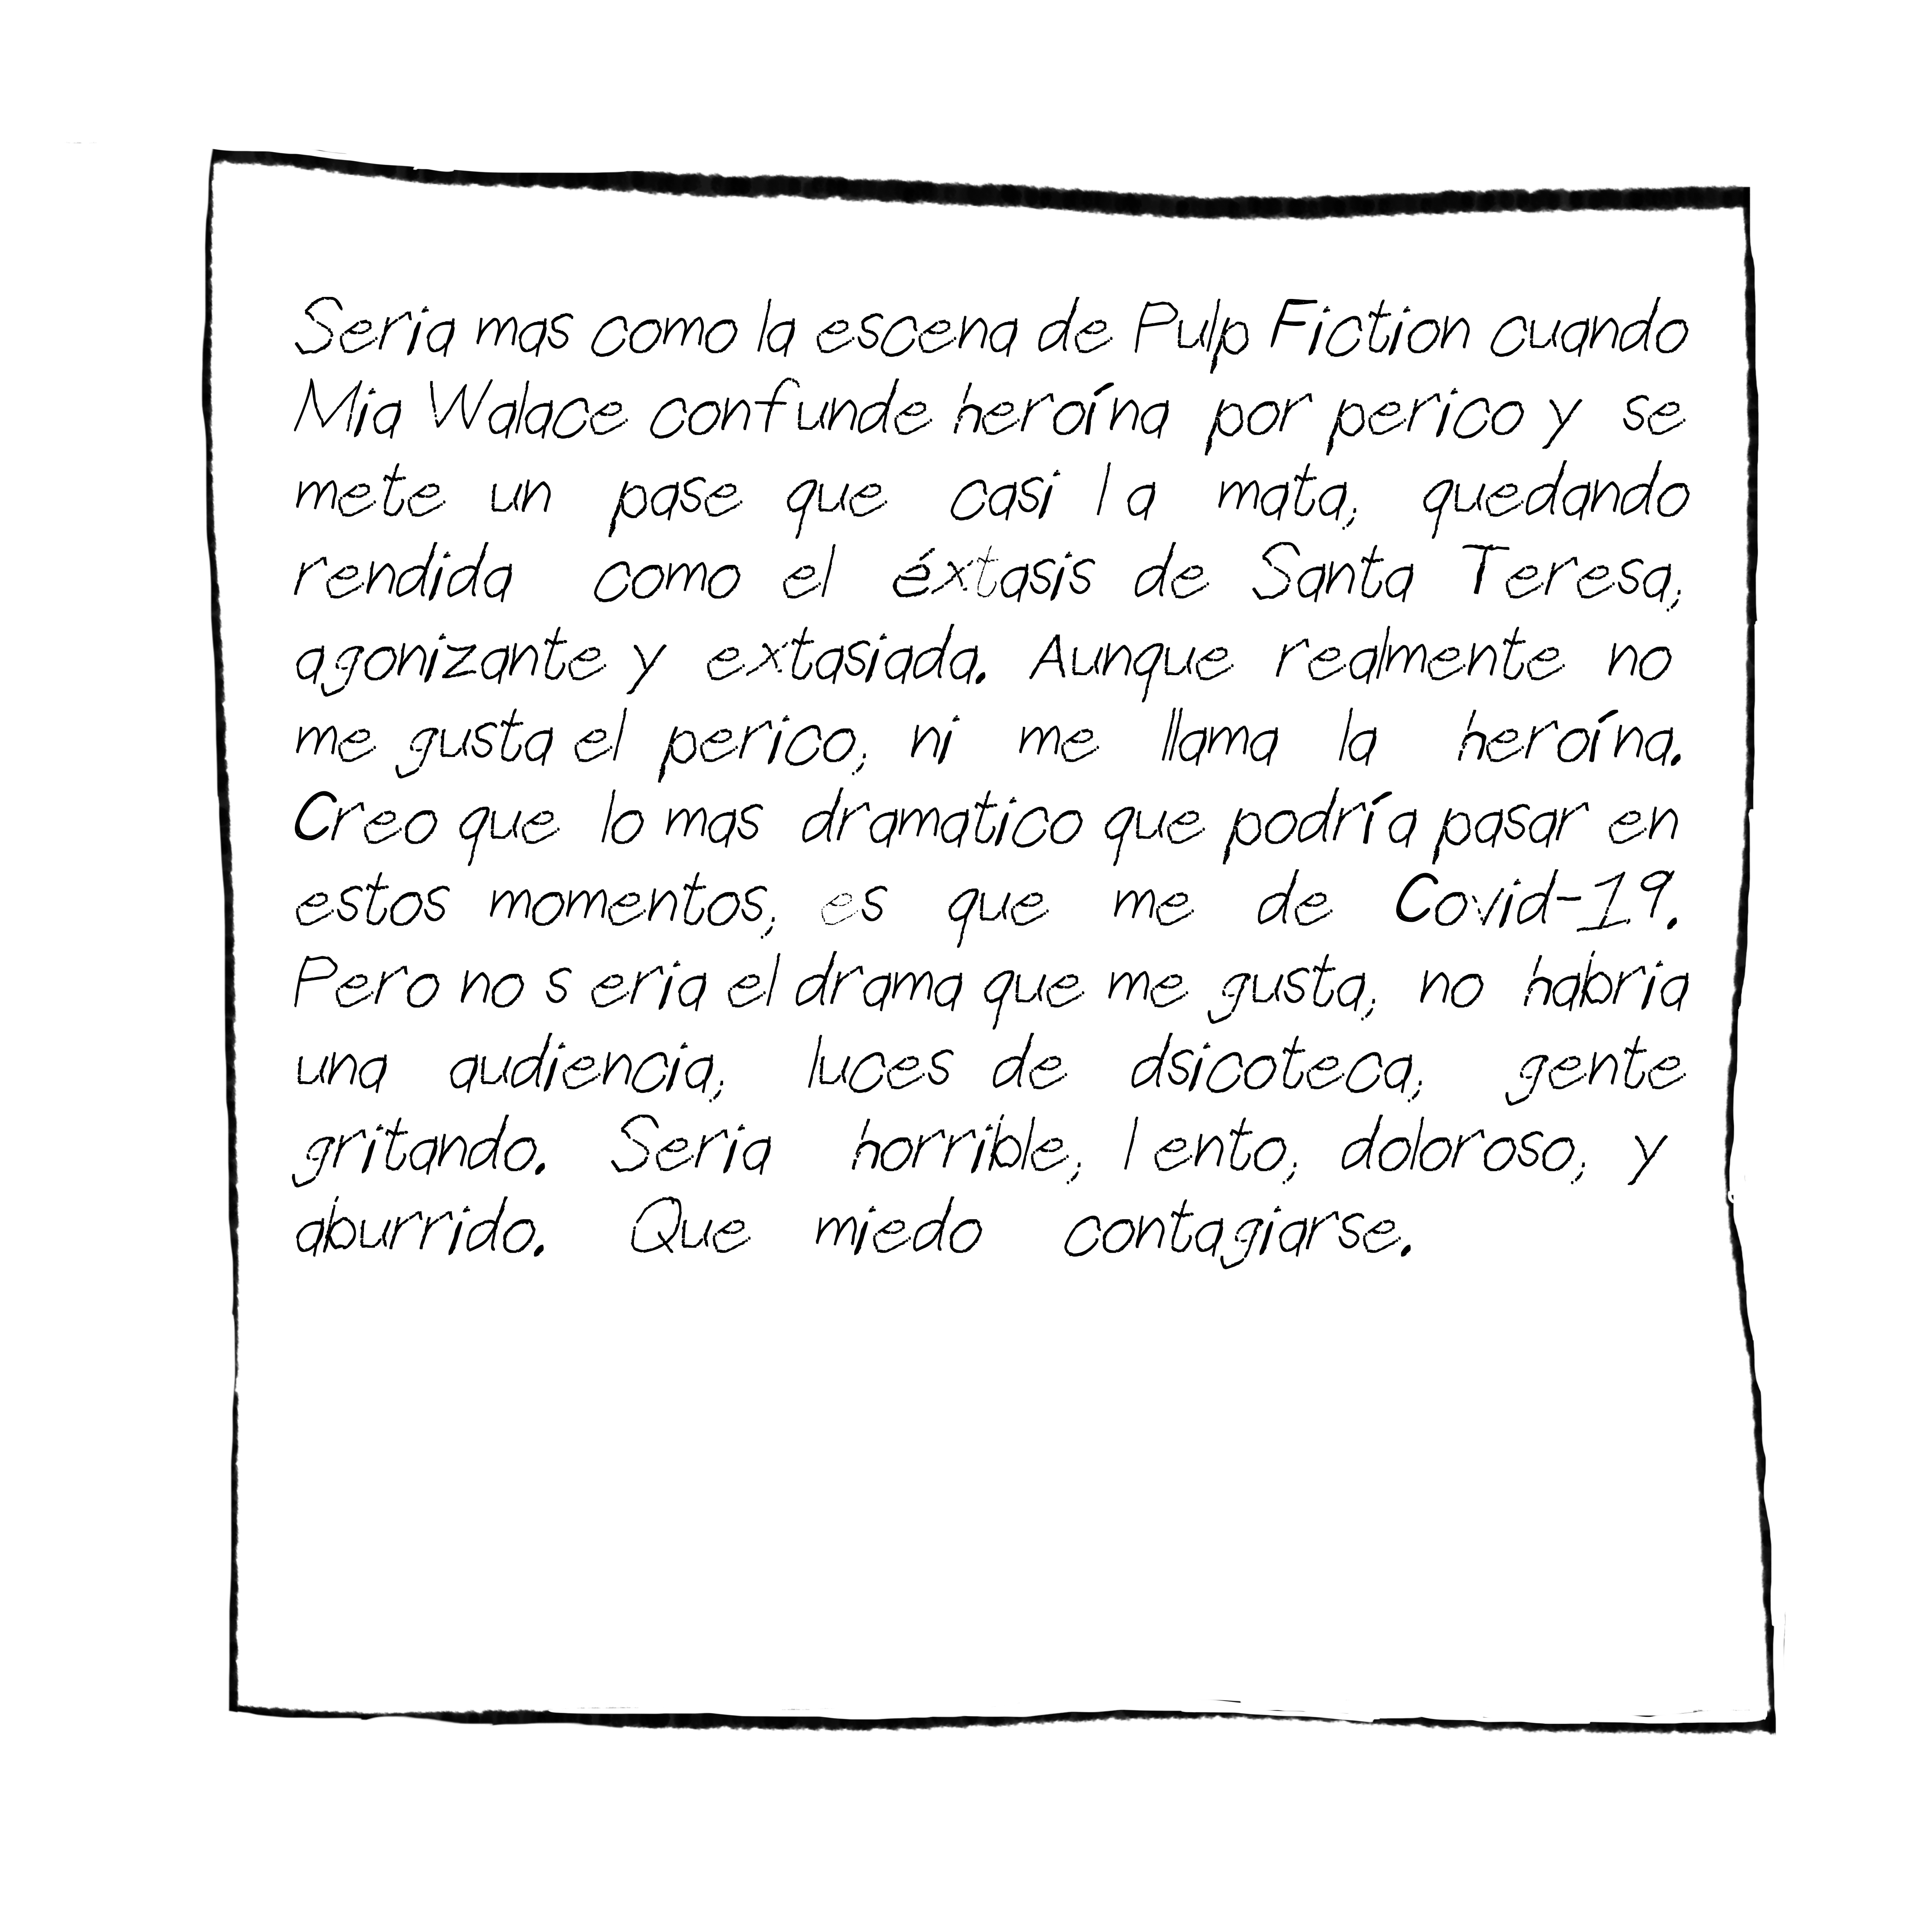 Seria mas como la escena de Pulp Fiction cuando
Mia Walace confunde heroína por perico y se
mete un pase que casi la mata, quedando
rendida como el éxtasis de Santa Teresa,
agonizante y extasiada. Aunque realmente no
me gusta el perico, ni me llama la heroína.
Creo que lo mas dramatico que podría pasar en
estos momentos, es que me de Covid-19.
Pero no seria el drama que me gusta, no habria
una audiencia, luces de dsicoteca, gente
gritando. Seria horrible, lento, doloroso, y
aburrido. Que miedo contagiarse.